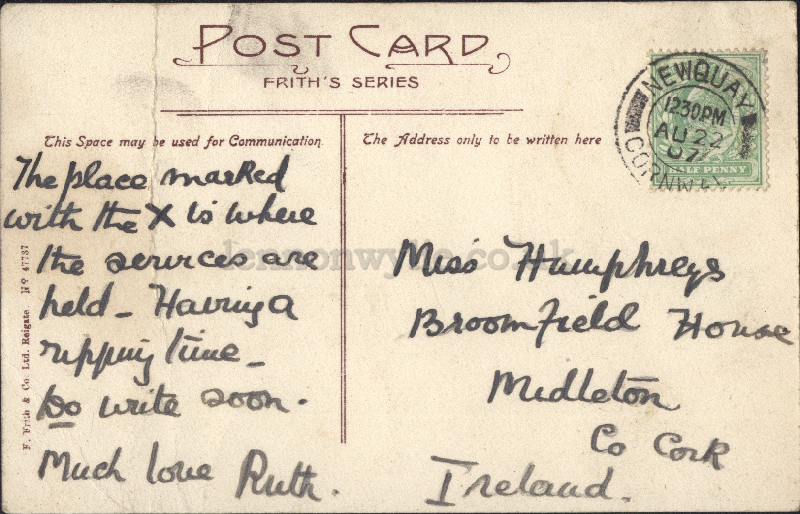 POST CARD
FRITH'S SERIES
This Space may be used for Communication
The Address only to be written here
The place marked
with the X is where
the services are
held - Having a
ripping time -
Do write soon.
Much love Ruth.
Miss Humphreys
Broomfield House
Midleton
Co Cork
Ireland.
NEWQUAY
12 30 PM
AU 22
07
CORNWALL
HALF PENNY
F. Frith & Co. Ltd. Reigate. No 47737
lennonwylie.co.uk